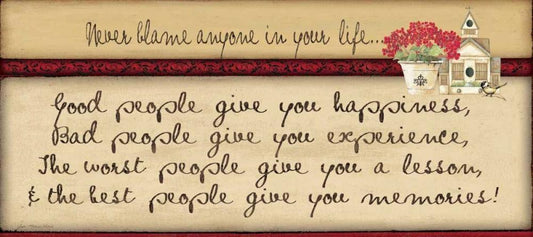 Never blame anyone in your life...
Good people give you happiness,
Bad people give you experience,
The worst people give you a lesson,
& the best people give you memories!